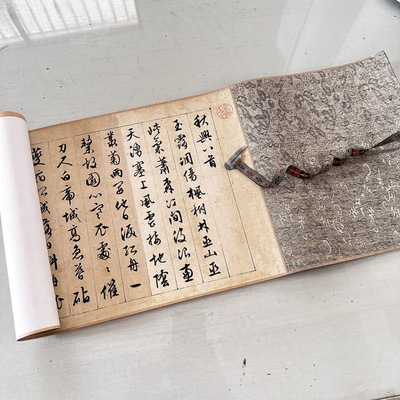 秋興八首
玉露凋傷楓樹林巫山巫
峽氣蕭森江間波浪兼
天湧塞上風雲接地陰
叢菊兩開他日淚孤舟一
繫故園心寒衣處〻催
刀尺白帝城高急暮砧
夔府孤城落日斜